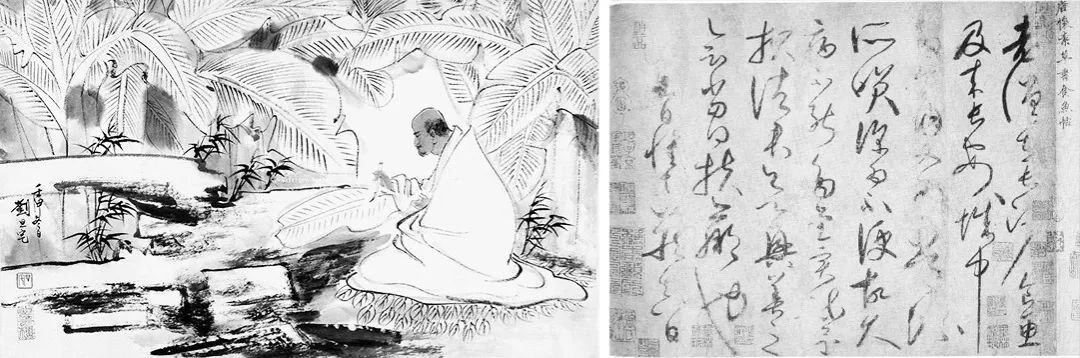 壬申冬
劉旦宅
唐懷素草書食魚帖
老僧在長沙食魚
及来長安城中
多食肉又為常流
所笑深為不便故久
病不能多書實疏
報諸君欲興善之
會當得扶羸也
九日懷素藏真白